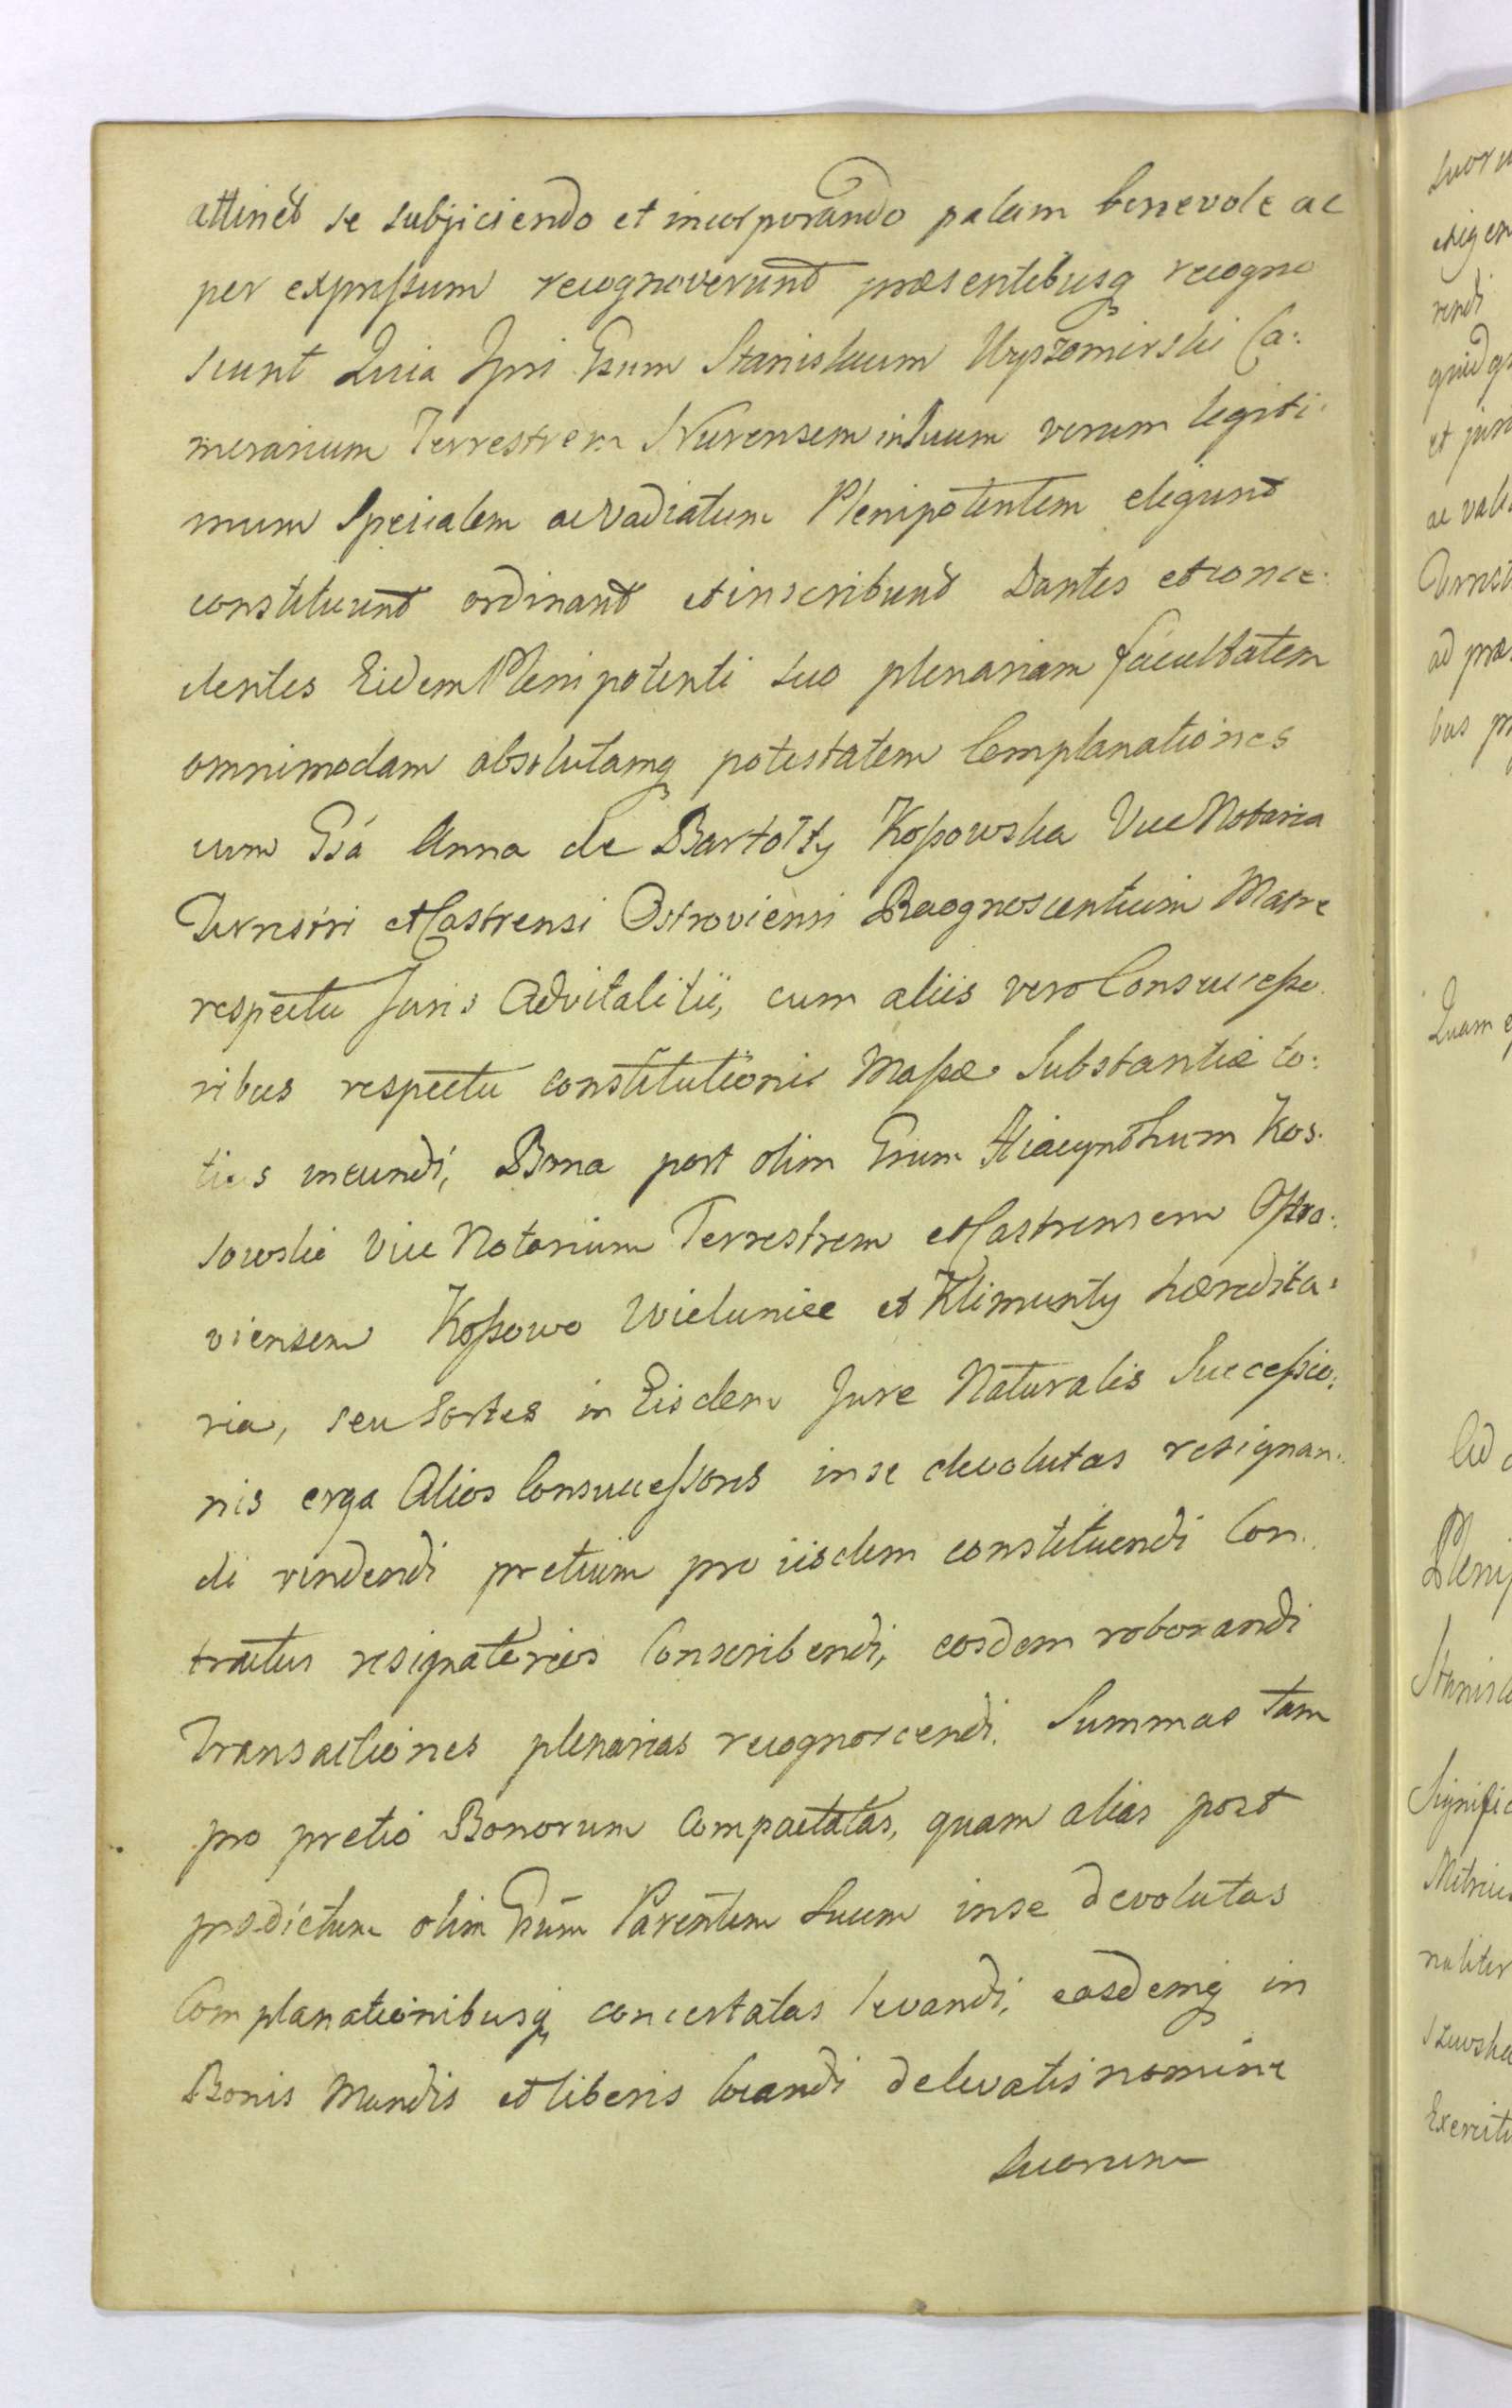 attinet se subjiciendo et incorporando palam benevole ac
per expressum recognoverunt præsentibusq recogno
scunt Quia Ipsi Gsum Stanislaum Wyszomirski Ca:
merarium Terrestrem Nurensem in Suum verum legiti:
mum Specialem ac Vadiatum Plenipotentem eligunt
constituunt ordinant et inscribunt Dantes et conce:
dentes Eidem Plenipotenti suo plenariam facultatem
omnimodam absolutamq potestatem Complanationes
cum Gsá Anna de Bartołty Kossowska Vice Notaria
Terrestri et Castrensi Ostroviensi Recognoscentium Matre
respectu Juris Advitalitii, cum aliis vero Consuccesso
ribus respectu constitutionis Massæ Substantiæ to:
tius ineundi, Bona post olim Gsum Hiacynthum Kos:
sowski Vice Notarium Terrestrem et Castrensem Ostro:
viensem Kossowo Wieluniee et Klimunty hæredita:
ria, seu Sortes in Eisdem Jure Naturalis Successio:
nis erga Alios Consuccessores in se devolutas resignan:
di vendendi pretium pro iisdem constituendi Con:
tractus resignatorios Conscribendi, eosdem roborandi
Transactiones plenarias recognoscendi. Summas tam
pro pretio Bonorum Compactatas, quam alias post
prædictum olim Gsum Parentem Suum in se devolutas
Complanationibusq concertatas levandi, easdemq in
Bonis Mundis et liberis locandi de levatis nomine
Suorum